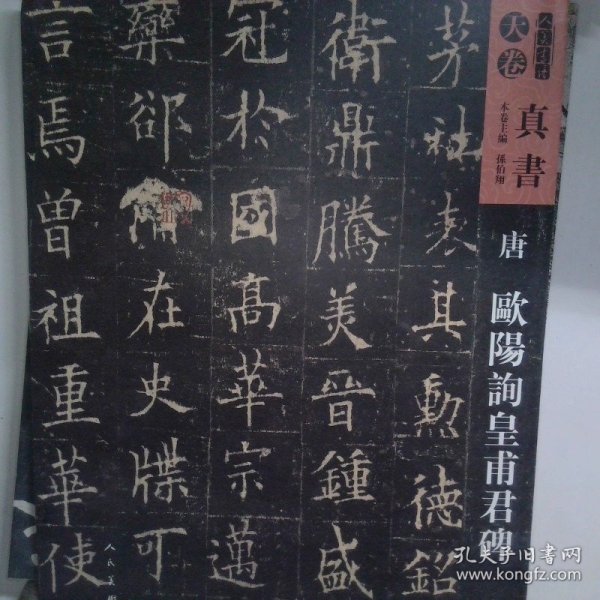 人美書譜
天卷
真書
本卷主編 孫伯翔
唐 歐陽詢皇甫君碑
茅社表其勳德銘
衛鼎騰美晉鍾盛
冠於國高華宗邁
欒郤備在史牒可
言焉曾祖重華使
人民美術
孔夫子旧書网
www.kongfz.com